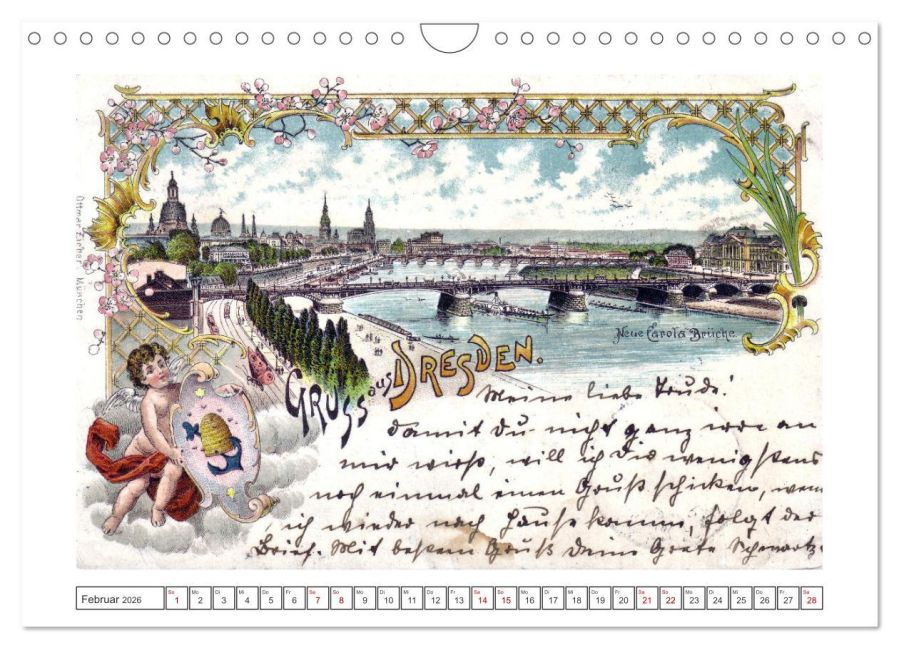 Ottmar Zieher, München
Neue Carola Brücke.
GRUSS aus DRESDEN.
Meine liebe Trude!
damit Du nicht ganz irre an
mir wirst, will ich Dir wenigstens
noch einmal einen Gruß schicken, wenn
ich wieder nach Hause komme, folgt der
Brief. Mit bestem Gruß Deine Grete Schwartz.
Februar 2026
So Mo Di Mi Do Fr Sa So Mo Di Mi Do Fr Sa So Mo Di Mi Do Fr Sa So Mo Di Mi Do Fr Sa
1 2 3 4 5 6 7 8 9 10 11 12 13 14 15 16 17 18 19 20 21 22 23 24 25 26 27 28